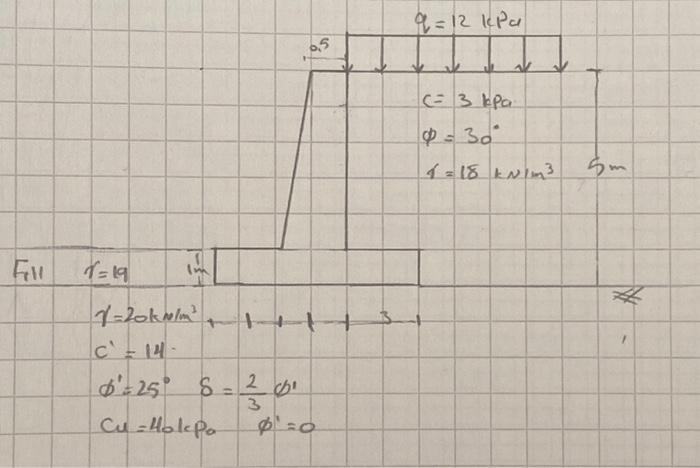 q = 12 kPa
0.5
c = 3 kpa
φ = 30°
γ = 18 kN/m³
5m
Fill γ = 19
1m
γ = 20 kN/m³
1 1 3
c' = 14
φ' = 25° δ = 2/3 φ'
Cu = 40 kPa φ' = 0